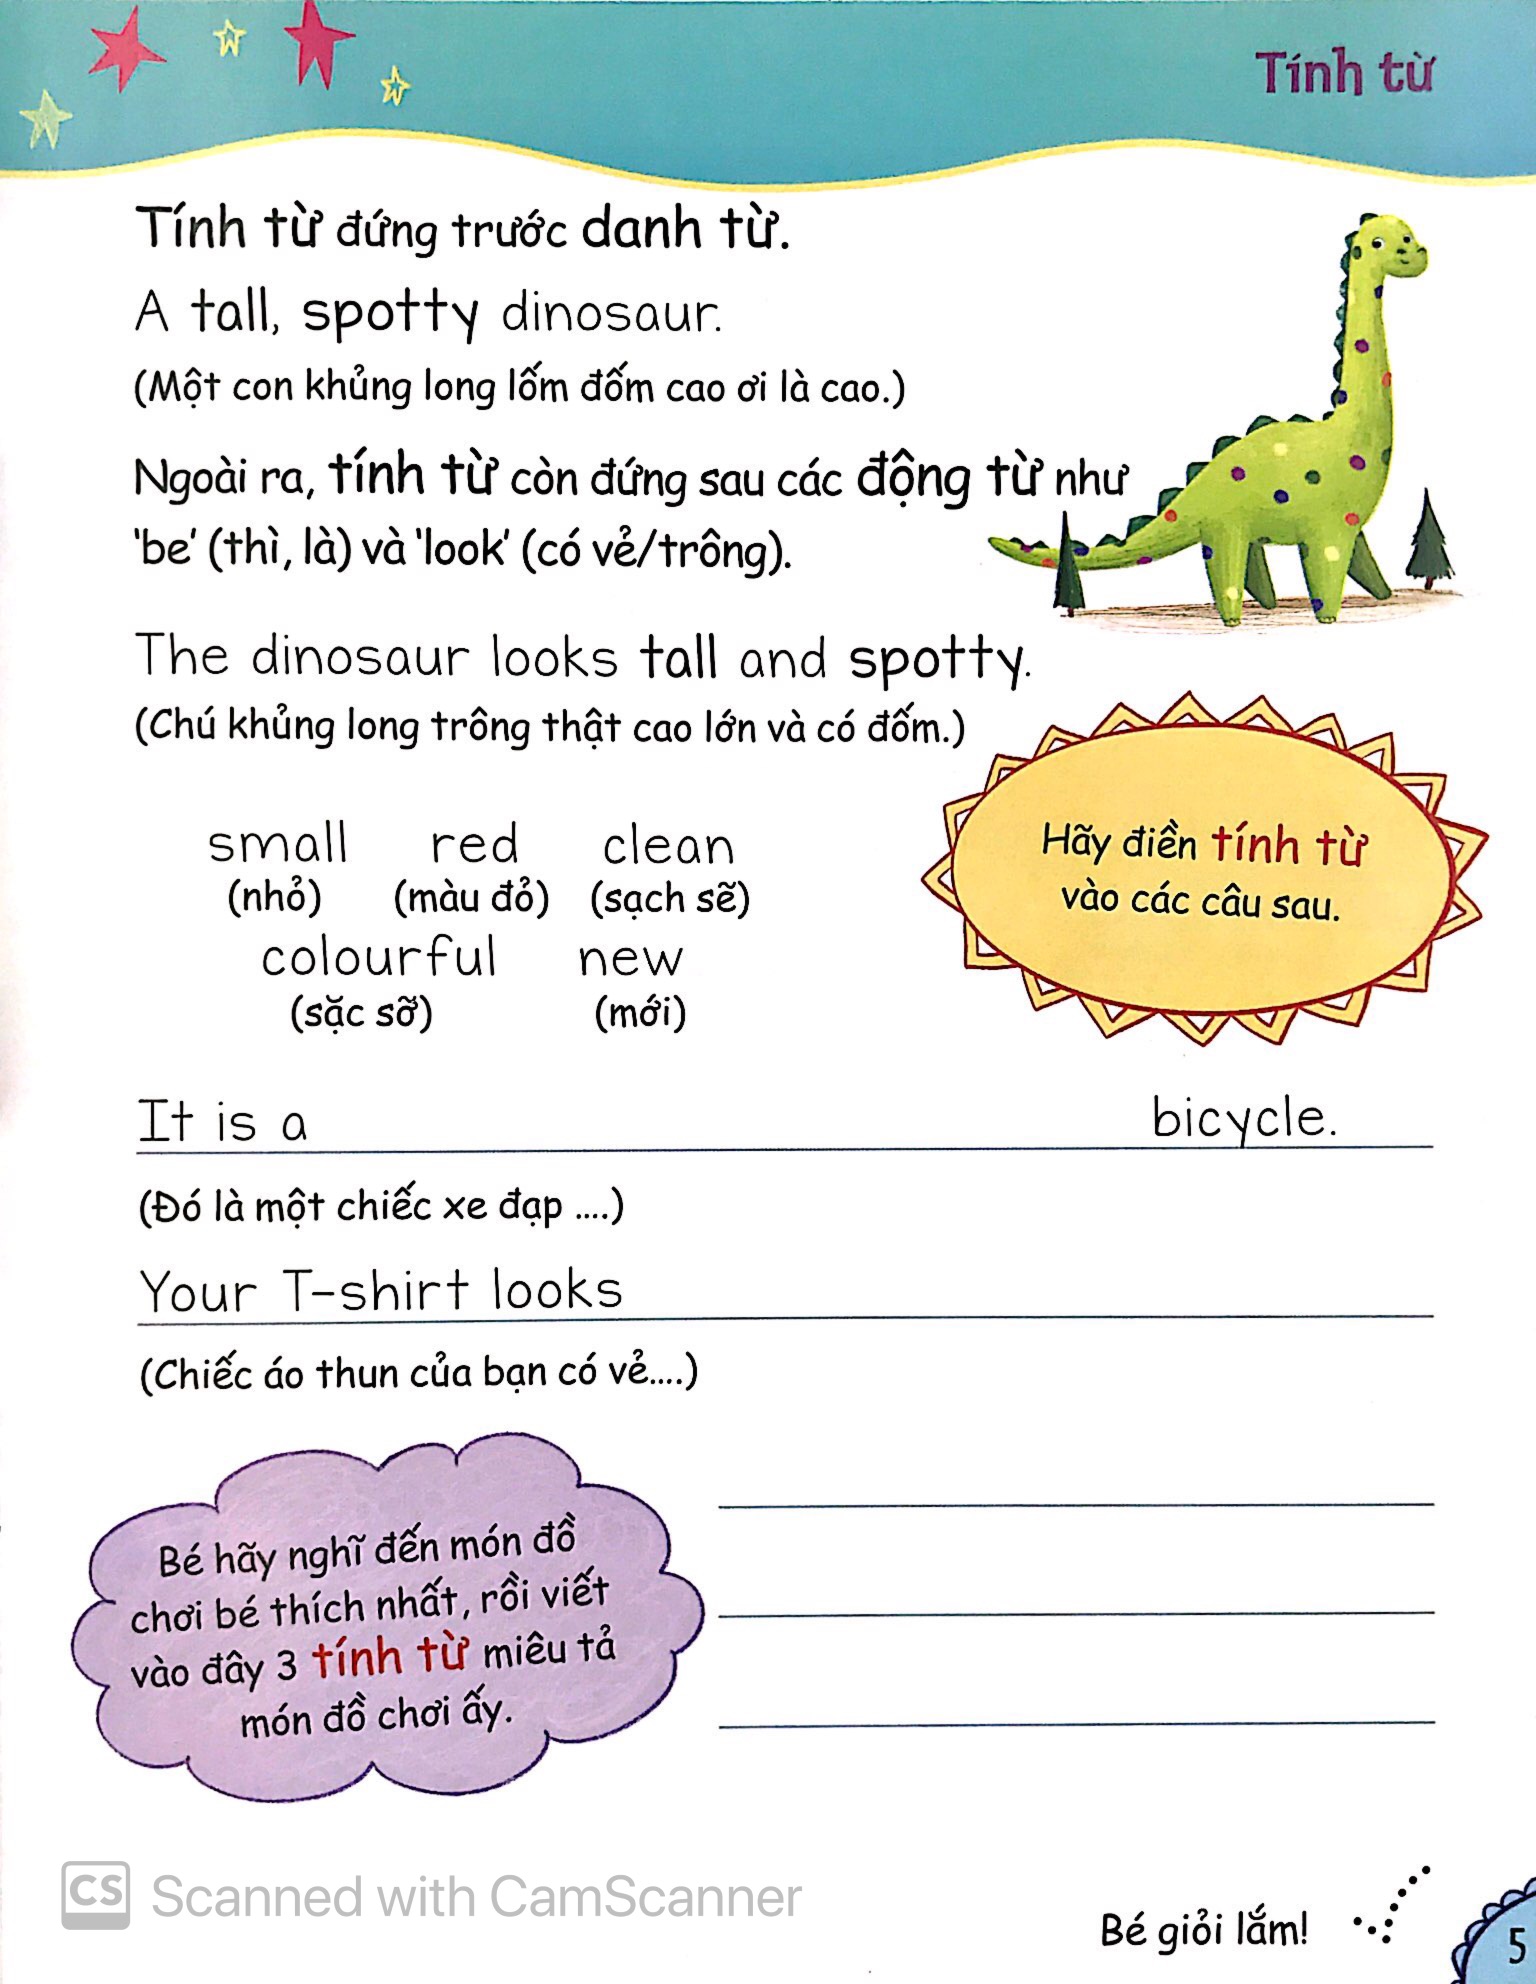 Tính từ
Tính từ đứng trước danh từ.
A tall, spotty dinosaur.
(Một con khủng long lốm đốm cao ơi là cao.)
Ngoài ra, tính từ còn đứng sau các động từ như
'be' (thì, là) và 'look' (có vẻ/trông).
The dinosaur looks tall and spotty.
(Chú khủng long trông thật cao lớn và có đốm.)
small red clean
(nhỏ) (màu đỏ) (sạch sẽ)
colourful new
(sặc sỡ) (mới)
Hãy điền tính từ
vào các câu sau.
It is a bicycle.
(Đó là một chiếc xe đạp ....)
Your T-shirt looks
(Chiếc áo thun của bạn có vẻ....)
Bé hãy nghĩ đến món đồ
chơi bé thích nhất, rồi viết
vào đây 3 tính từ miêu tả
món đồ chơi ấy.
CS Scanned with CamScanner
Bé giỏi lắm!
5